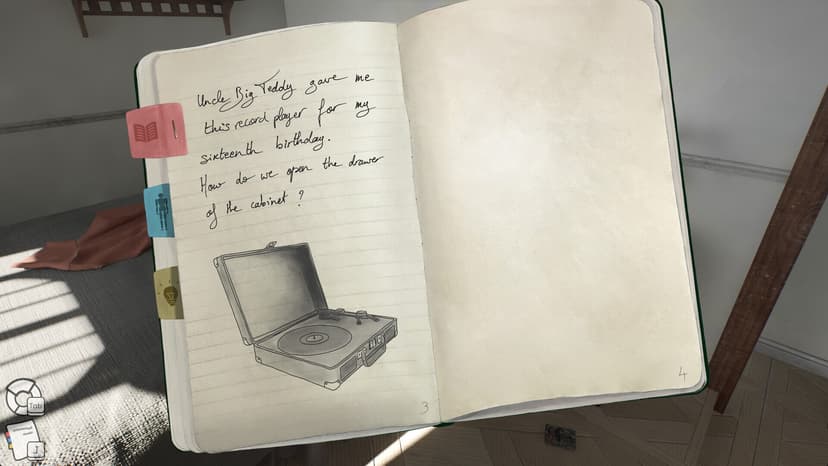 Uncle Big Teddy gave me
this record player for my
sixteenth birthday.
How do we open the drawer
of the cabinet ?
3
4
Tab
J